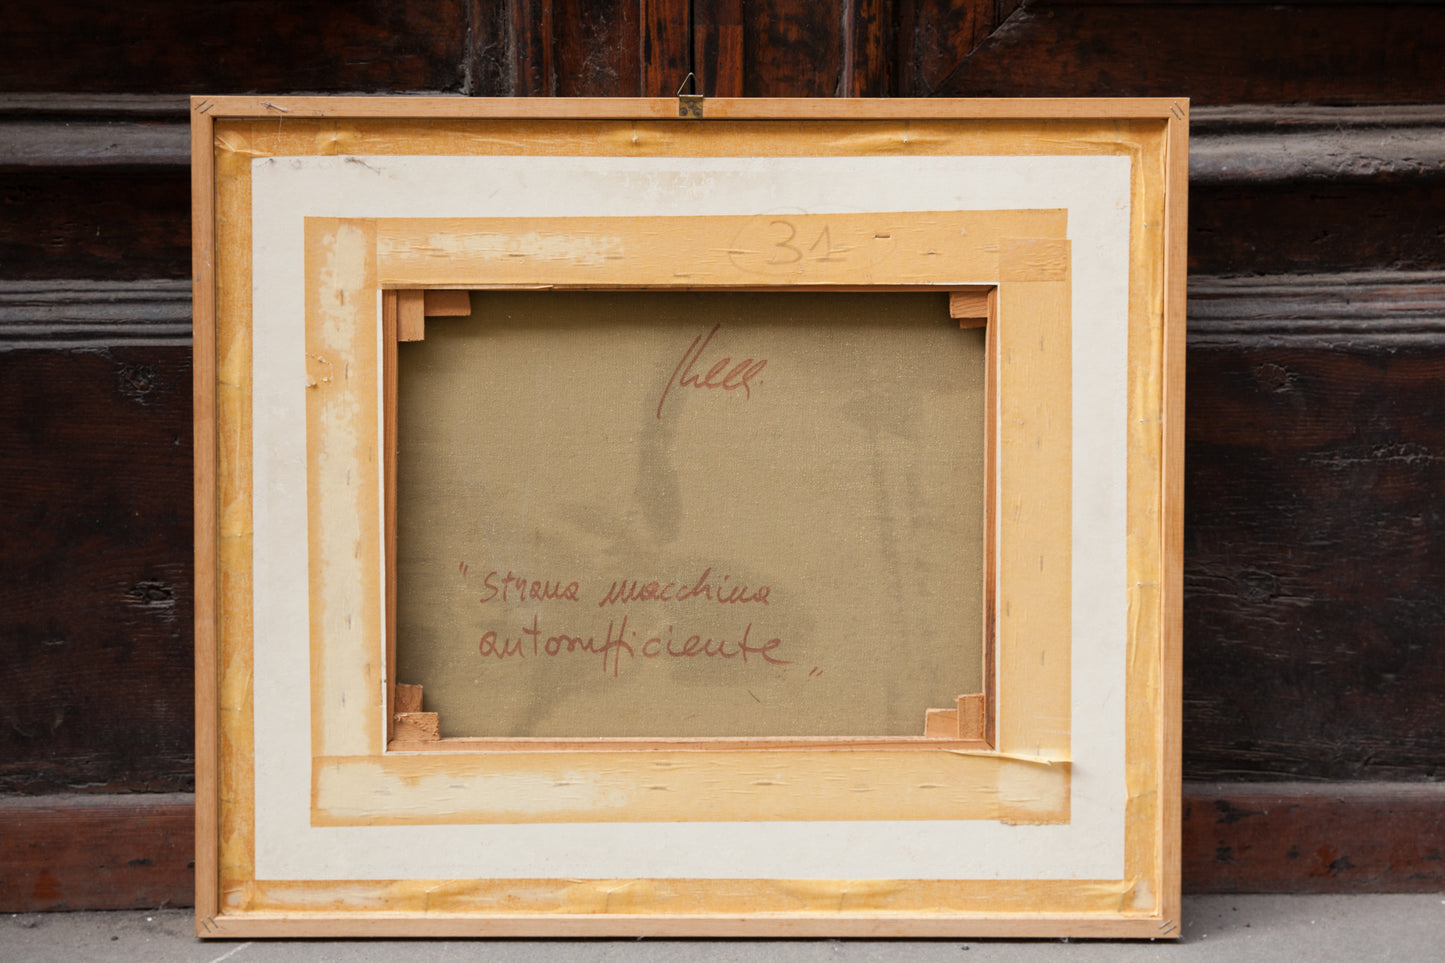 31
"Strana macchina
autosufficiente"